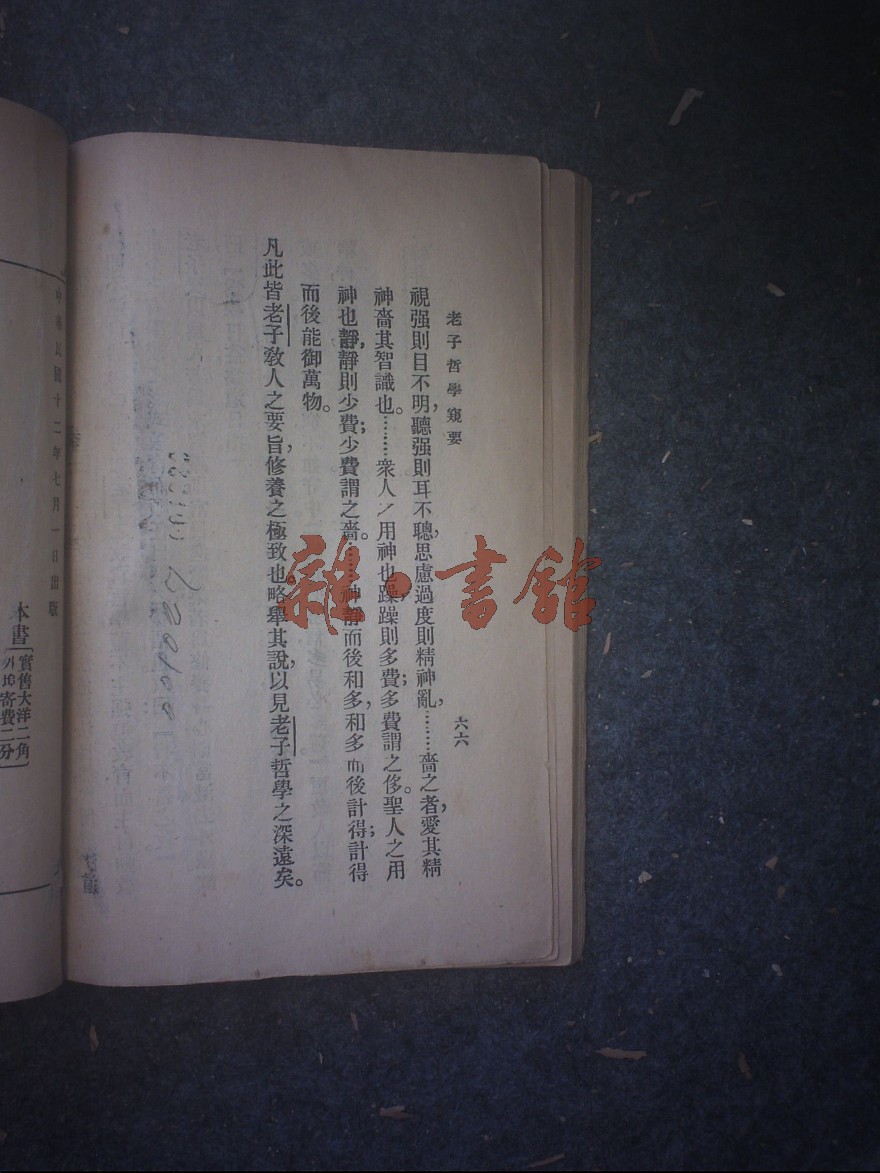 老子哲學窺要
六六
視强則目不明，聽强則耳不聰，思慮過度則精神亂，………嗇之者，愛其精
神嗇其智識也。………衆人ノ用神也躁，躁則多費；多費謂之侈。聖人之用
神也靜，靜則少費；少費謂之嗇。……神靜而後和多，和多而後計得；計得
而後能御萬物。
凡此皆老子敎人之要旨，修養之極致也。略舉其說，以見老子哲學之深遠矣。
雜·書館
中華民國十二年七月一日出版
本書
實售大洋二角
外埠寄費二分